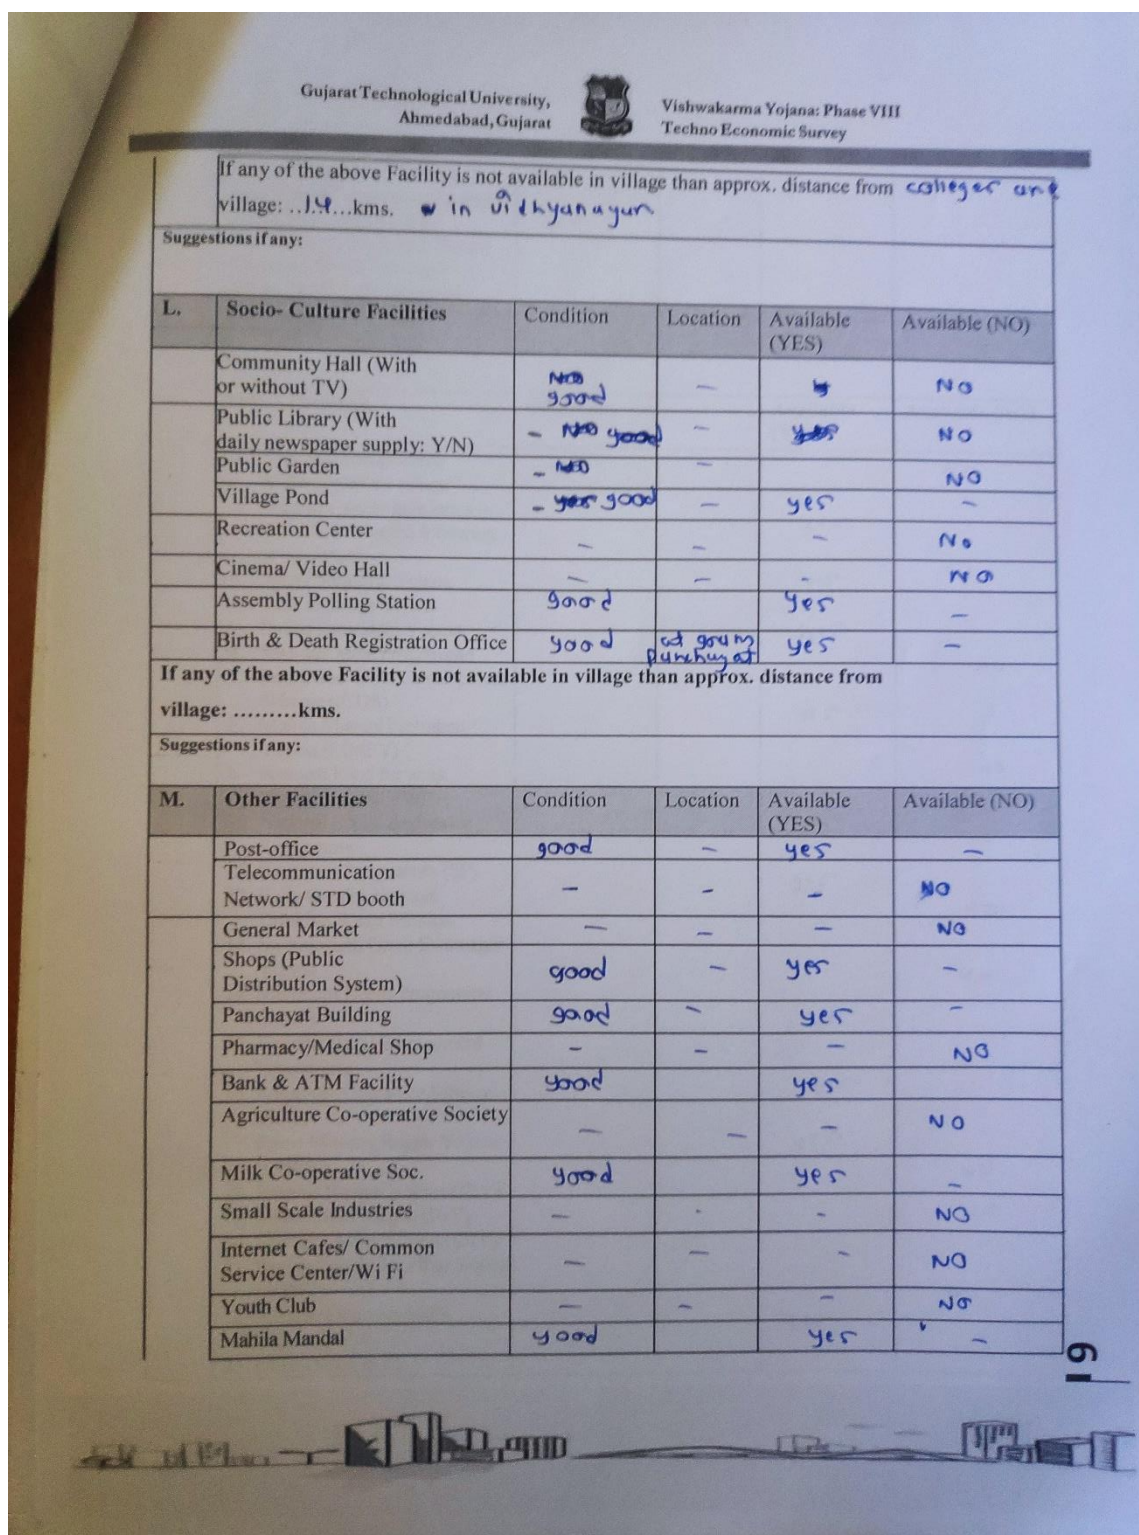 Gujarat Technological University,
Ahmedabad, Gujarat
Vishwakarma Yojana: Phase VIII
Techno Economic Survey
If any of the above Facility is not available in village than approx. distance from colleges are
village: ..14...kms. in vidhyanagar
Suggestions if any:
L. Socio- Culture Facilities Condition Location Available (YES) Available (NO)
Community Hall (With
or without TV) good - NO
Public Library (With
daily newspaper supply: Y/N) - good - NO
Public Garden - NO - NO
Village Pond - good - yes -
Recreation Center - - - No
Cinema/ Video Hall - - - NO
Assembly Polling Station good yes -
Birth & Death Registration Office good at panchayat yes -
If any of the above Facility is not available in village than approx. distance from
village: .........kms.
Suggestions if any:
M. Other Facilities Condition Location Available (YES) Available (NO)
Post-office good - yes -
Telecommunication
Network/ STD booth - - - NO
General Market - - - NO
Shops (Public
Distribution System) good - yes -
Panchayat Building good - yes -
Pharmacy/Medical Shop - - - NO
Bank & ATM Facility good yes
Agriculture Co-operative Society - - - NO
Milk Co-operative Soc. good yes -
Small Scale Industries - - - NO
Internet Cafes/ Common
Service Center/Wi Fi - - - NO
Youth Club - - - NO
Mahila Mandal good yes -
19